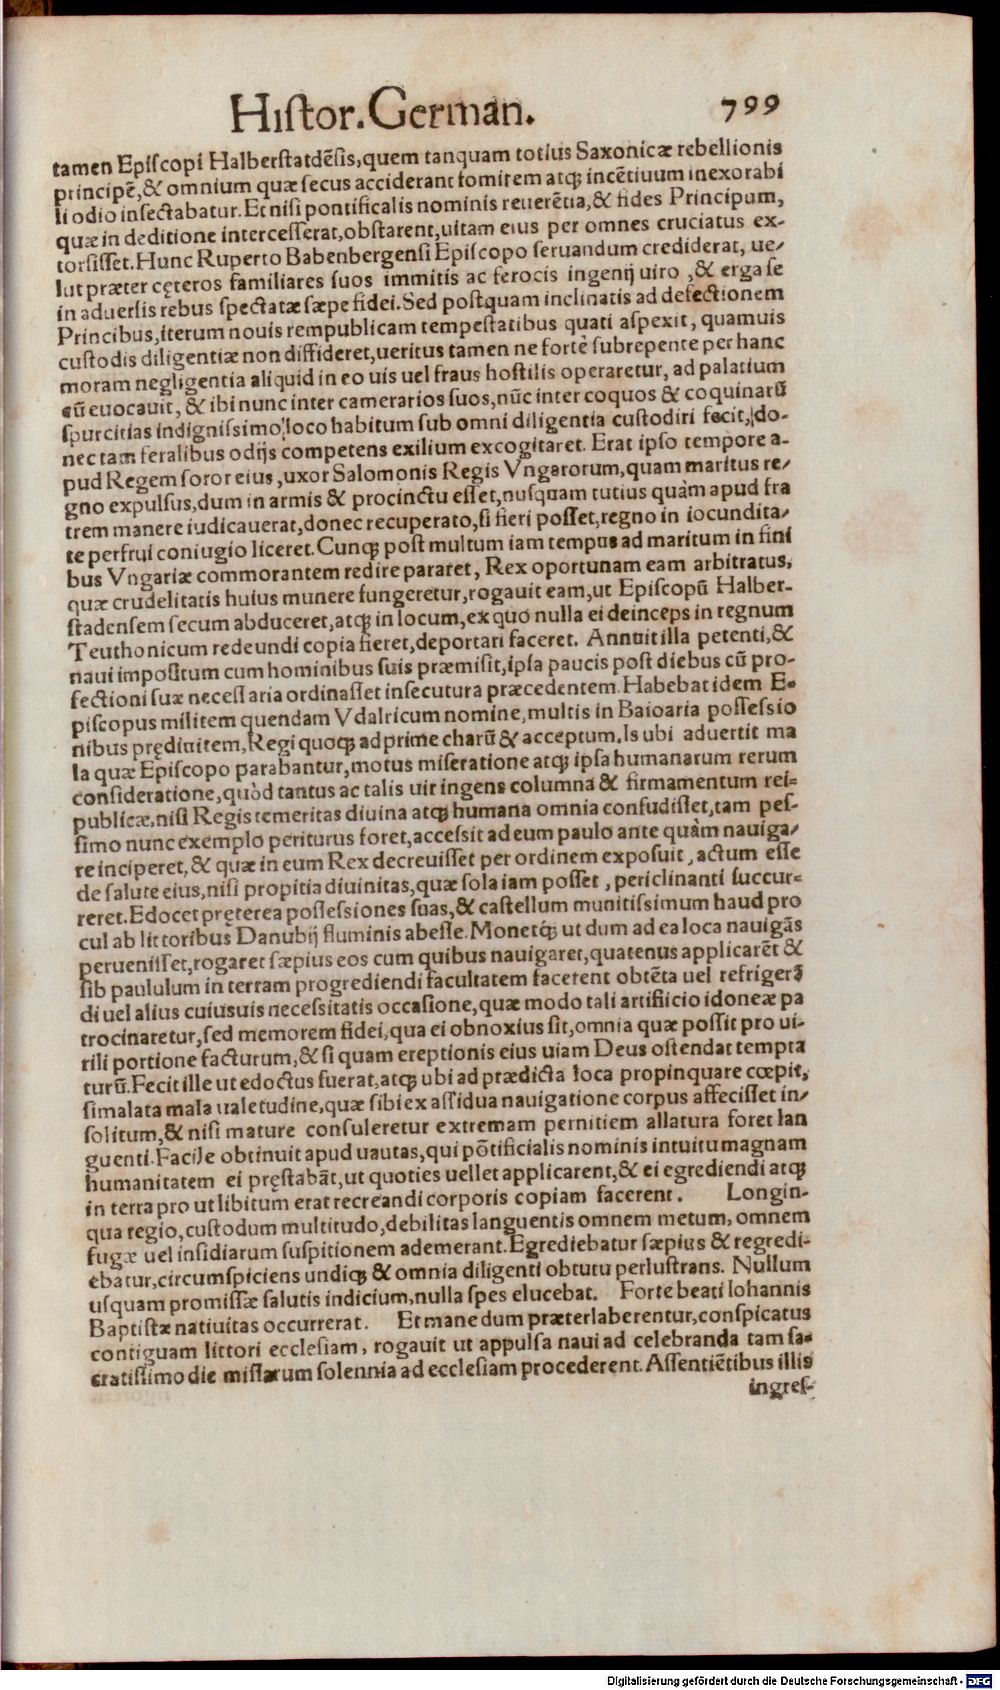 Hiſtor. German. 799
tamen Epiſcopi Halberſtatdẽſis, quem tanquam totius Saxonicæ rebellionis
principẽ, & omnium quæ ſecus acciderant fomitem atq; incẽtiuum inexorabi
li odio inſectabatur. Et niſi pontificalis nominis reuerẽtia, & fides Principum,
quæ in deditione interceſſerat, obſtarent, uitam eius per omnes cruciatus ex-
torſiſſet. Hunc Ruperto Babenbergenſi Epiſcopo ſeruandum crediderat, ue/
lut præter cęteros familiares ſuos immitis ac ferocis ingenij uiro, & erga ſe
in aduerſis rebus ſpectatæ ſæpe fidei. Sed poſtquam inclinatis ad defectionem
Principibus, iterum nouis rempublicam tempeſtatibus quati aſpexit, quamuis
cuſtodis diligentiæ non diffideret, ueritus tamen ne fortè ſubrepente per hanc
moram negligentia aliquid in eo uis uel fraus hoſtilis operaretur, ad palatium
eũ euocauit, & ibi nunc inter camerarios ſuos, nũc inter coquos & coquinarũ
ſpurcitias indigniſſimo loco habitum ſub omni diligentia cuſtodiri fecit, do-
nec tam feralibus odijs competens exilium excogitaret. Erat ipſo tempore a-
pud Regem ſoror eius, uxor Salomonis Regis Vngarorum, quam maritus re/
gno expulſus, dum in armis & procinctu eſſet, nuſquam tutius quàm apud fra
trem manere iudicauerat, donec recuperato, ſi fieri poſſet, regno in iocundita/
te perfrui coniugio liceret. Cunq; poſt multum iam tempus ad maritum in fini
bus Vngariæ commorantem redire pararet, Rex oportunam eam arbitratus,
quæ crudelitatis huius munere fungeretur, rogauit eam, ut Epiſcopũ Halber-
ſtadenſem ſecum abduceret, atq; in locum, ex quo nulla ei deinceps in regnum
Teuthonicum redeundi copia fieret, deportari faceret. Annuit illa petenti, &
naui impoſitum cum hominibus ſuis præmiſit, ipſa paucis poſt diebus cũ pro-
fectioni ſuæ neceſſaria ordinaſſet inſecutura præcedentem. Habebat idem E-
piſcopus militem quendam Vdalricum nomine, multis in Baioaria poſſeſſio
nibus prędiuitem, Regi quoq; ad prime charũ & acceptum. Is ubi aduertit ma
la quæ Epiſcopo parabantur, motus miſeratione atq; ipſa humanarum rerum
conſideratione, quòd tantus ac talis uir ingens columna & firmamentum rei-
publicæ, niſi Regis temeritas diuina atq; humana omnia confudiſſet, tam peſ-
ſimo nunc exemplo periturus foret, acceſsit ad eum paulo ante quàm nauiga/
re inciperet, & quæ in eum Rex decreuiſſet per ordinem expoſuit, actum eſſe
de ſalute eius, niſi propitia diuinitas, quæ ſola iam poſſet, periclinanti ſuccur-
reret. Edocet pręterea poſſeſsiones ſuas, & caſtellum munitiſsimum haud pro
cul ab littoribus Danubij fluminis abeſſe. Monetq́; ut dum ad ea loca nauigãs
perueniſſet, rogaret ſæpius eos cum quibus nauigaret, quatenus applicarẽt &
ſib paululum in terram progrediendi facultatem facerent obtẽta uel refrigerã
di uel alius cuiuſuis neceſsitatis occaſione, quæ modo tali artifiicio idoneæ pa
trocinaretur, ſed memorem fidei, qua ei obnoxius ſit, omnia quæ poſſit pro ui-
rili portione facturum, & ſi quam ereptionis eius uiam Deus oſtendat tempta
turũ. Fecit ille ut edoctus fuerat, atq; ubi ad prædicta loca propinquare cœpit,
ſimalata mala ualetudine, quæ ſibi ex aſſidua nauigatione corpus affeciſſet in/
ſolitum, & niſi mature conſuleretur extremam pernitiem allatura foret lan
guenti. Facile obtinuit apud uautas, qui põtificialis nominis intuitu magnam
humanitatem ei pręſtabãt, ut quoties uellet applicarent, & ei egrediendi atq;
in terra pro ut libitum erat recreandi corporis copiam facerent. Longin-
qua regio, cuſtodum multitudo, debilitas languentis omnem metum, omnem
fugæ uel inſidiarum ſuſpitionem ademerant. Egrediebatur ſæpius & regredi-
ebatur, circumſpiciens undiq; & omnia diligenti obtutu perluſtrans. Nullum
uſquam promiſſæ ſalutis indicium, nulla ſpes elucebat. Forte beati Iohannis
Baptiſtæ natiuitas occurrerat. Et mane dum præterlaberentur, conſpicatus
contiguam littori eccleſiam, rogauit ut appulſa naui ad celebranda tam ſa-
cratiſſimo die miſſarum ſolennia ad eccleſiam procederent. Aſſentiẽtibus illis
ingreſ-
Digitalisierung gefördert durch die Deutsche Forschungsgemeinschaft - DFG